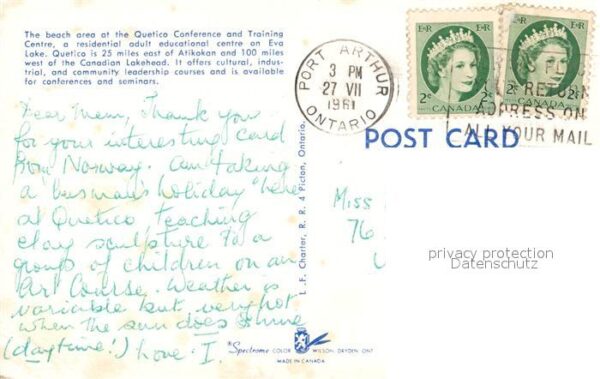 The beach area at the Quetico Conference and Training
Centre, a residential adult educational centre on Eva
Lake. Quetico is 25 miles east of Atikokan and 100 miles
west of the Canadian Lakehead. It offers cultural, indus-
trial, and community leadership courses and is available
for conferences and seminars.
Dear Mem, Thank you
for your interesting card
from Norway. Am taking
a busman's holiday here
at Quetico, teaching
clay sculpture to a
group of children on an
Art Course. Weather is
variable but very hot
when the sun does shine
(daytime!) Love. I.
L. F. Charter, R. R. 4 Picton, Ontario.
Spectrome COLOR WILSON, DRYDEN, ONT
MADE IN CANADA
PORT ARTHUR
3 PM
27 VII
1961
ONTARIO
E II R
2c 2c
CANADA
E II R
2c 2c
CANADA
RETURN
ADDRESS ON
ALL YOUR MAIL
POST CARD
Miss
76
privacy protection
Datenschutz